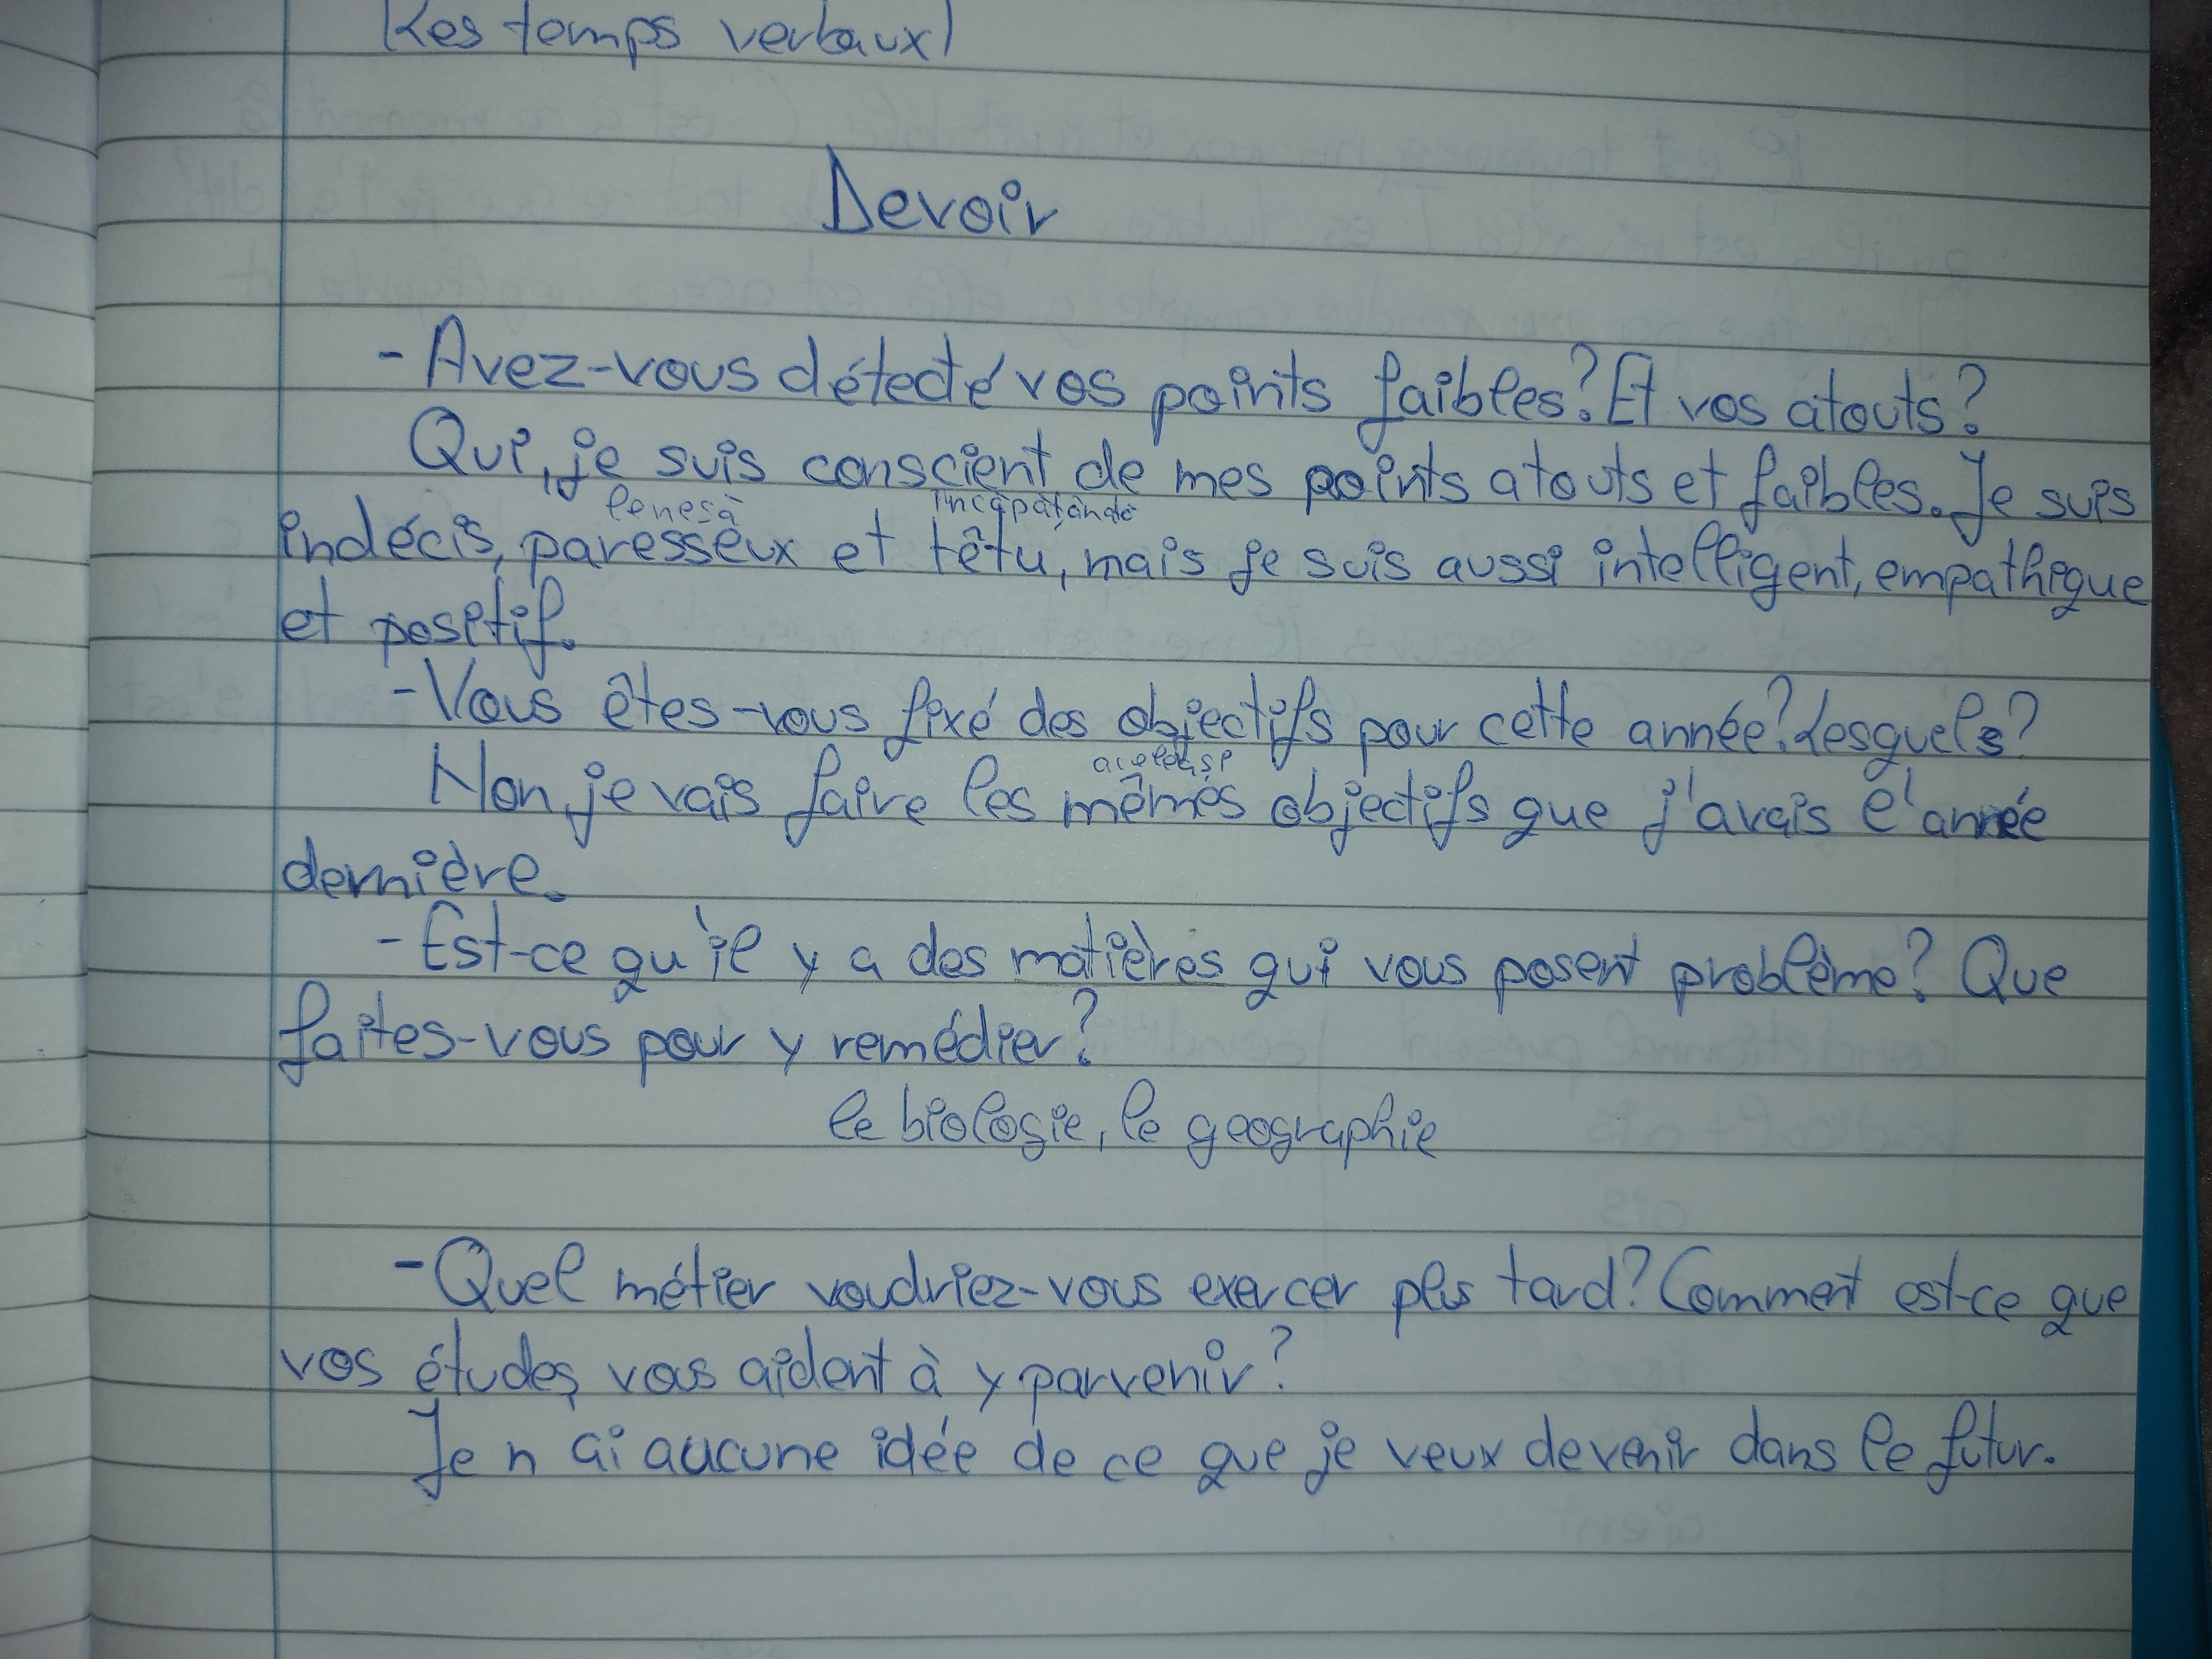 (Les temps verbaux)
Devoir
- Avez-vous détecté vos points faibles? Et vos atouts?
Oui, je suis conscient de mes points atouts et faibles. Je suis
leneșă încăpățânată
indécis, paresseux et têtu, mais je suis aussi intelligent, empathique
et positif.
- Vous êtes-vous fixé des objectifs pour cette année? Lesquels?
aceleași
Non, je vais faire les mêmes objectifs que j'avais l'année
dernière.
- Est-ce qu'il y a des matières qui vous posent problème? Que
faites-vous pour y remédier?
le biologie, le geographie
- Quel métier voudriez-vous exercer plus tard? Comment est-ce que
vos études vous aident à y parvenir?
Je n'ai aucune idée de ce que je veux devenir dans le futur.